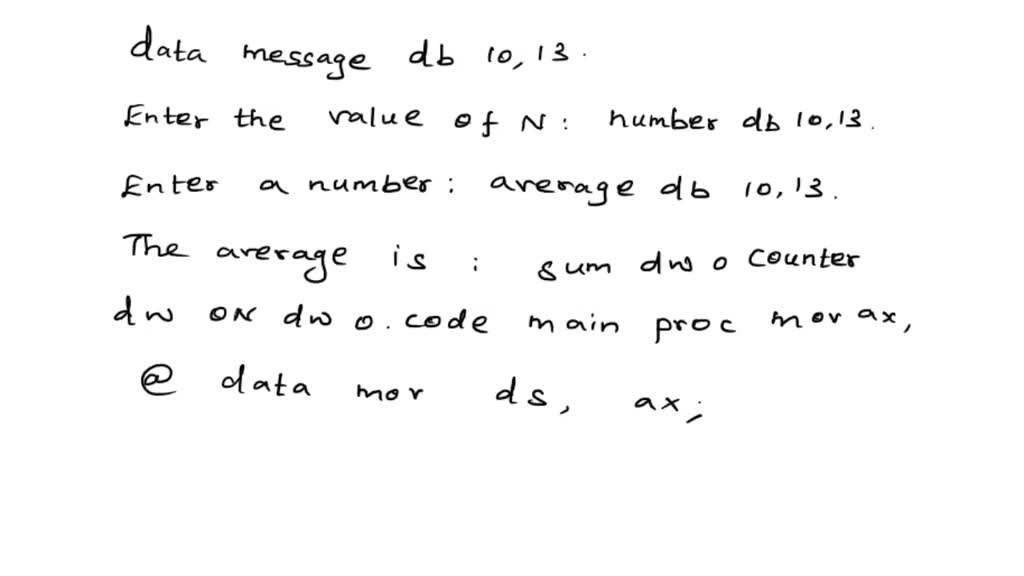 data message db 10, 13.
Enter the value of N: number db 10,13.
Enter a number: average db 10,13.
The average is : sum dw 0 counter
dw 0N dw 0. code main proc mov ax,
@ data mov ds, ax;